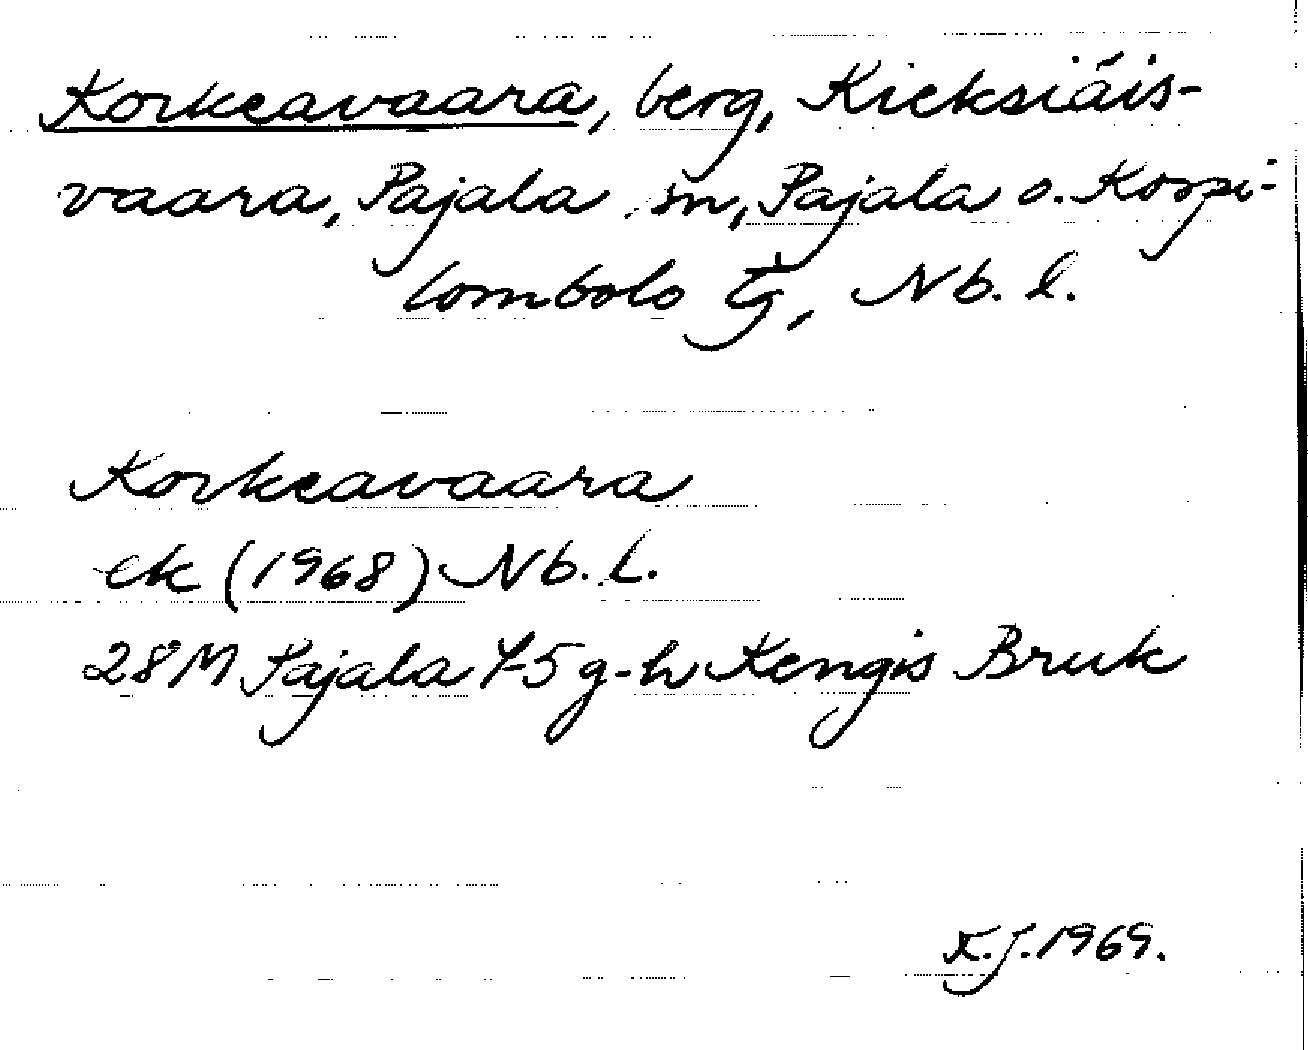 Korkeavaara, berg, Kieksiäis-
vaara, Pajala sn, Pajala o. Korpi-
lombolo tg, Nb. l.
Korkeavaara
ek (1968) Nb. L.
28 M Pajala 4-5 g-h Kengis Bruk
K.J. 1969.